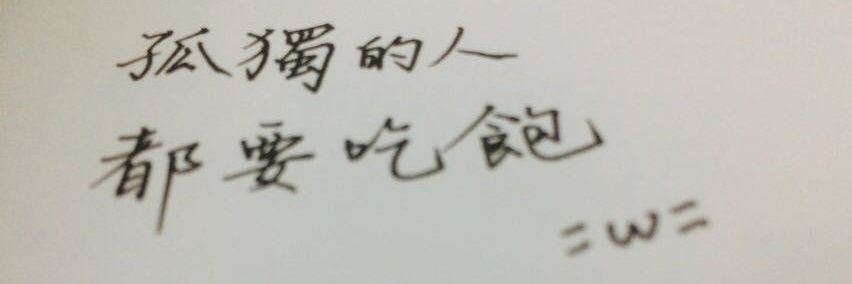 孤獨的人
都要吃飽
=w=